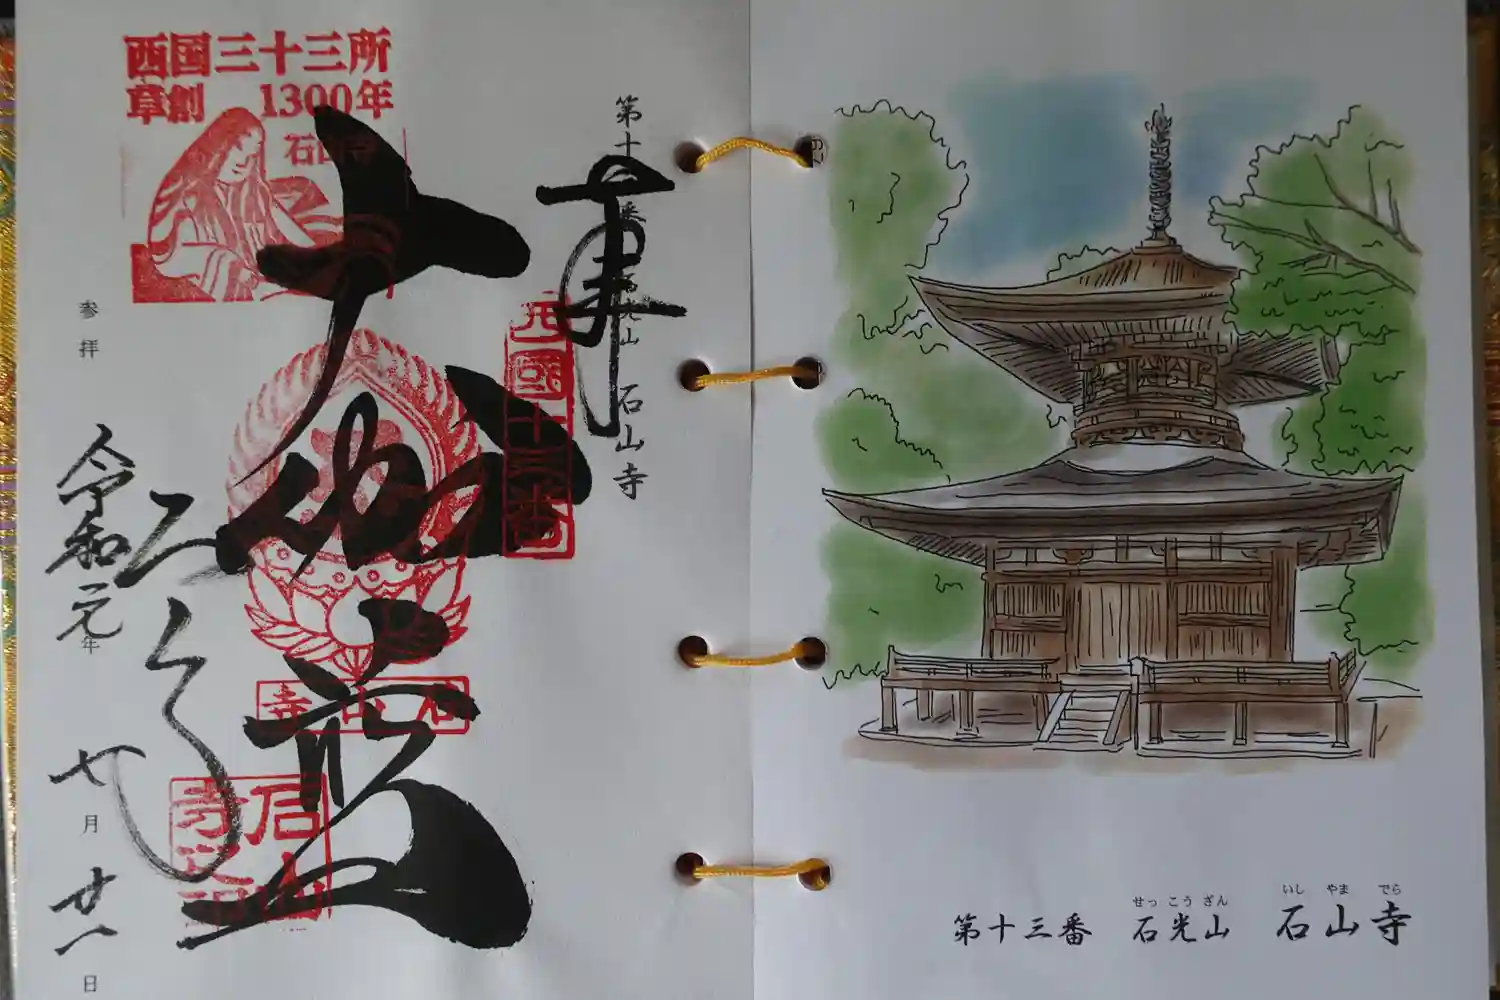 西国三十三所
草創 1300年
石山寺
第十三番 石光山 石山寺
奉
拝
大伽藍
西国十三番
石山寺
参拝
令和元年
七月
廿一日
せっこうざん
いしやまでら
第十三番 石光山 石山寺